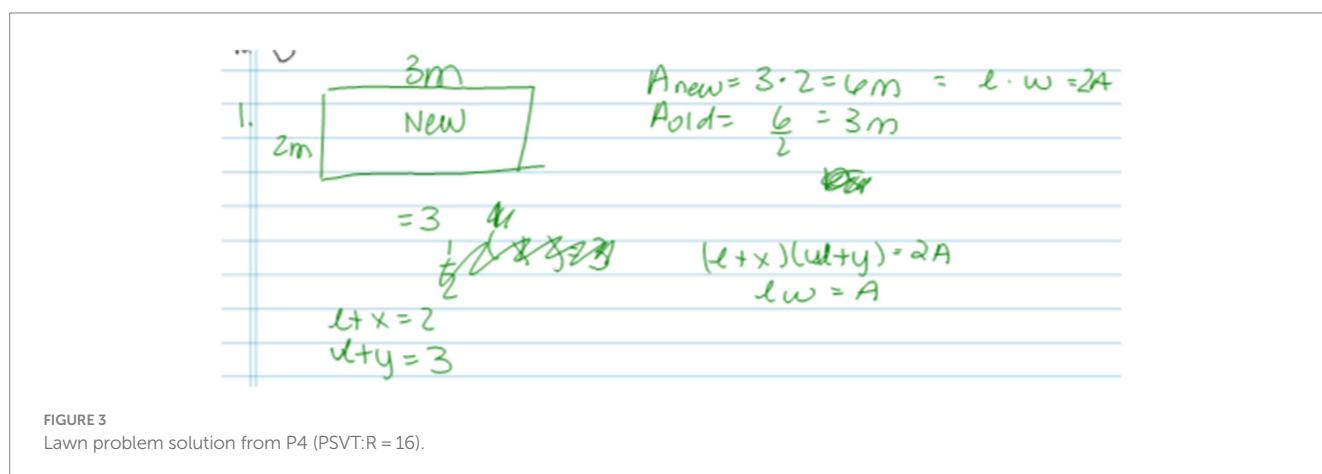 3m
1.
New
2m
Anew = 3·2 = 6m = l·w = 2A
Aold = 6/2 = 3m
= 3
1/2
(l+x)(w+y) = 2A
lw = A
l+x = 2
w+y = 3
FIGURE 3
Lawn problem solution from P4 (PSVT:R = 16).